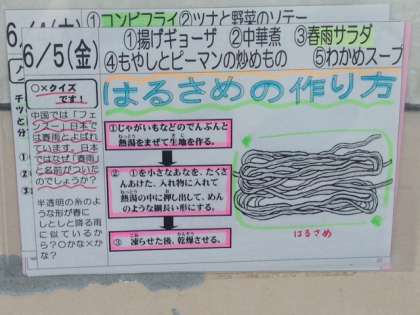 ①コンビフライ②ツナと野菜のソテー
6/5(金)
①揚げギョーザ ②中華煮 ③春雨サラダ
④もやしとピーマンの炒めもの ⑤わかめスープ
はるさめの作り方
○×クイズ
です!
中国では「フェ
ンスー」日本で
は春雨とよばれ
ています。日本
ではなぜ「春雨」
と名前がついた
のでしょうか?
半透明の糸のよ
うな形が春に
しとしと降る雨
に似ているか
ら?○かな×か
な?
①じゃがいもなどのでんぷんと
熱湯をまぜて生地を作る。
② ①を小さなあなを、たくさ
んあけた、入れ物に入れて
熱湯の中に押し出して、めん
のような細長い形にする。
③ 凍らせた後、乾燥させる。
はるさめ